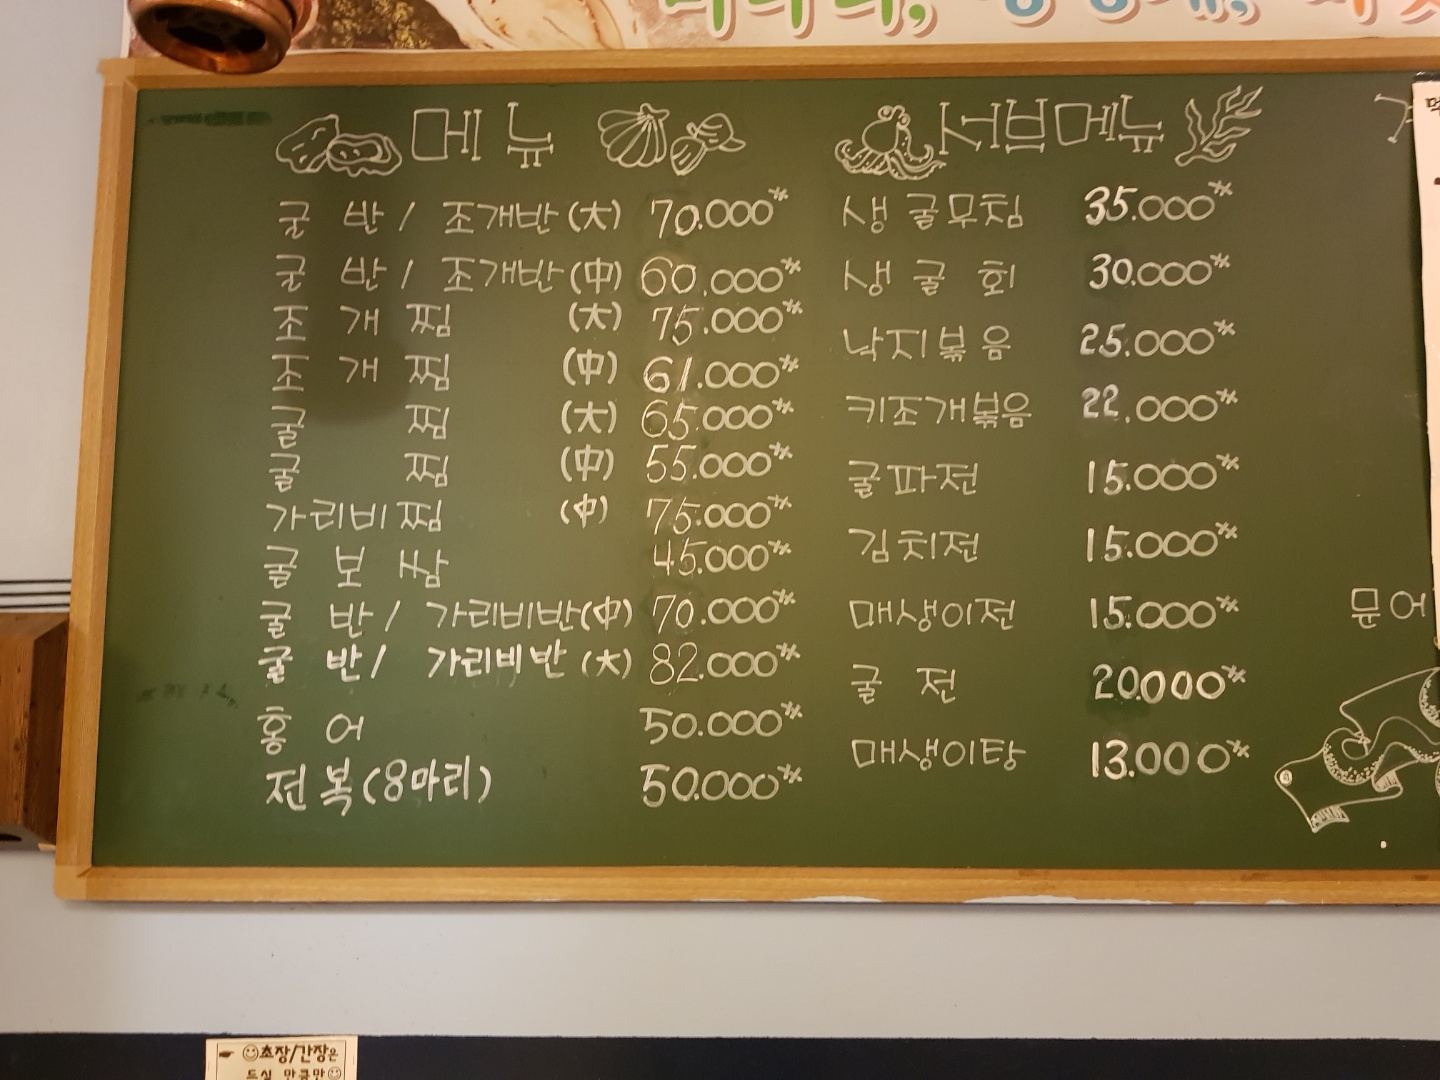 메뉴
굴 반 / 조개반 (大) 70.000
굴 반 / 조개반 (中) 60.000
조 개 찜 (大) 75.000
조 개 찜 (中) 61.000
굴 찜 (大) 65.000
굴 찜 (中) 55.000
가리비찜 (中) 75.000
굴 보 쌈 45.000
굴 반 / 가리비반(中) 70.000
굴 반 / 가리비반 (大) 82.000
홍 어 50.000
전 복 (8마리) 50.000
서브메뉴
생 굴무침 35.000
생 굴 회 30.000
낙지볶음 25.000
키조개볶음 22.000
굴파전 15.000
김치전 15.000
매생이전 15.000
굴 전 20.000
매생이탕 13.000
문어
초장/간장은